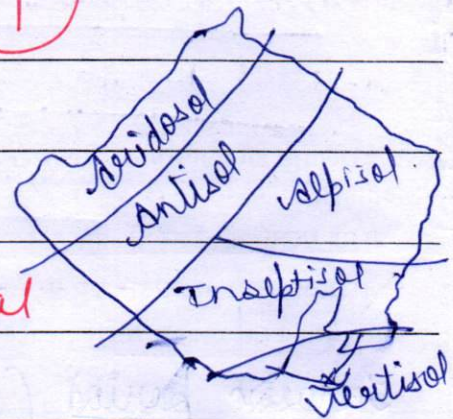 1
Aridosol
Antisol
Alpisol
Inseptisol
Vertisol